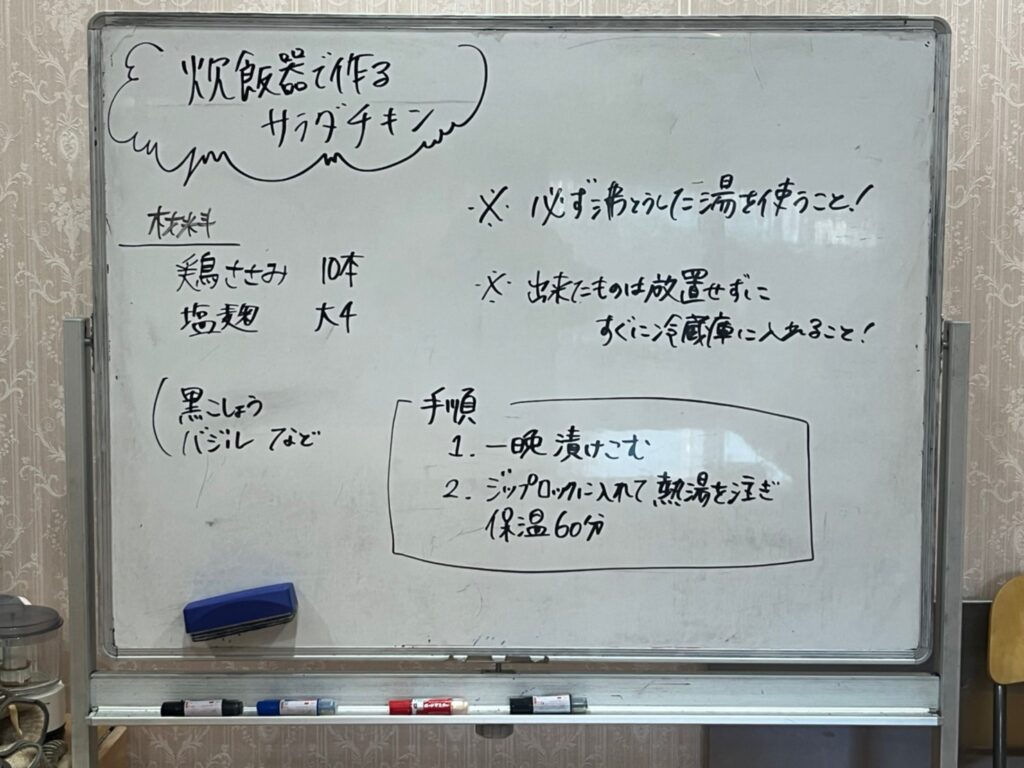 炊飯器で作る
サラダチキン
材料
鶏ささみ 10本
塩麹 大4
(黒こしょう
バジル など
※ 必ず沸とうした湯を使うこと!
※ 出来たものは放置せずに
すぐに冷蔵庫に入れること!
手順
1. 一晩 漬けこむ
2. ジップロックに入れて 熱湯を注ぎ
保温60分